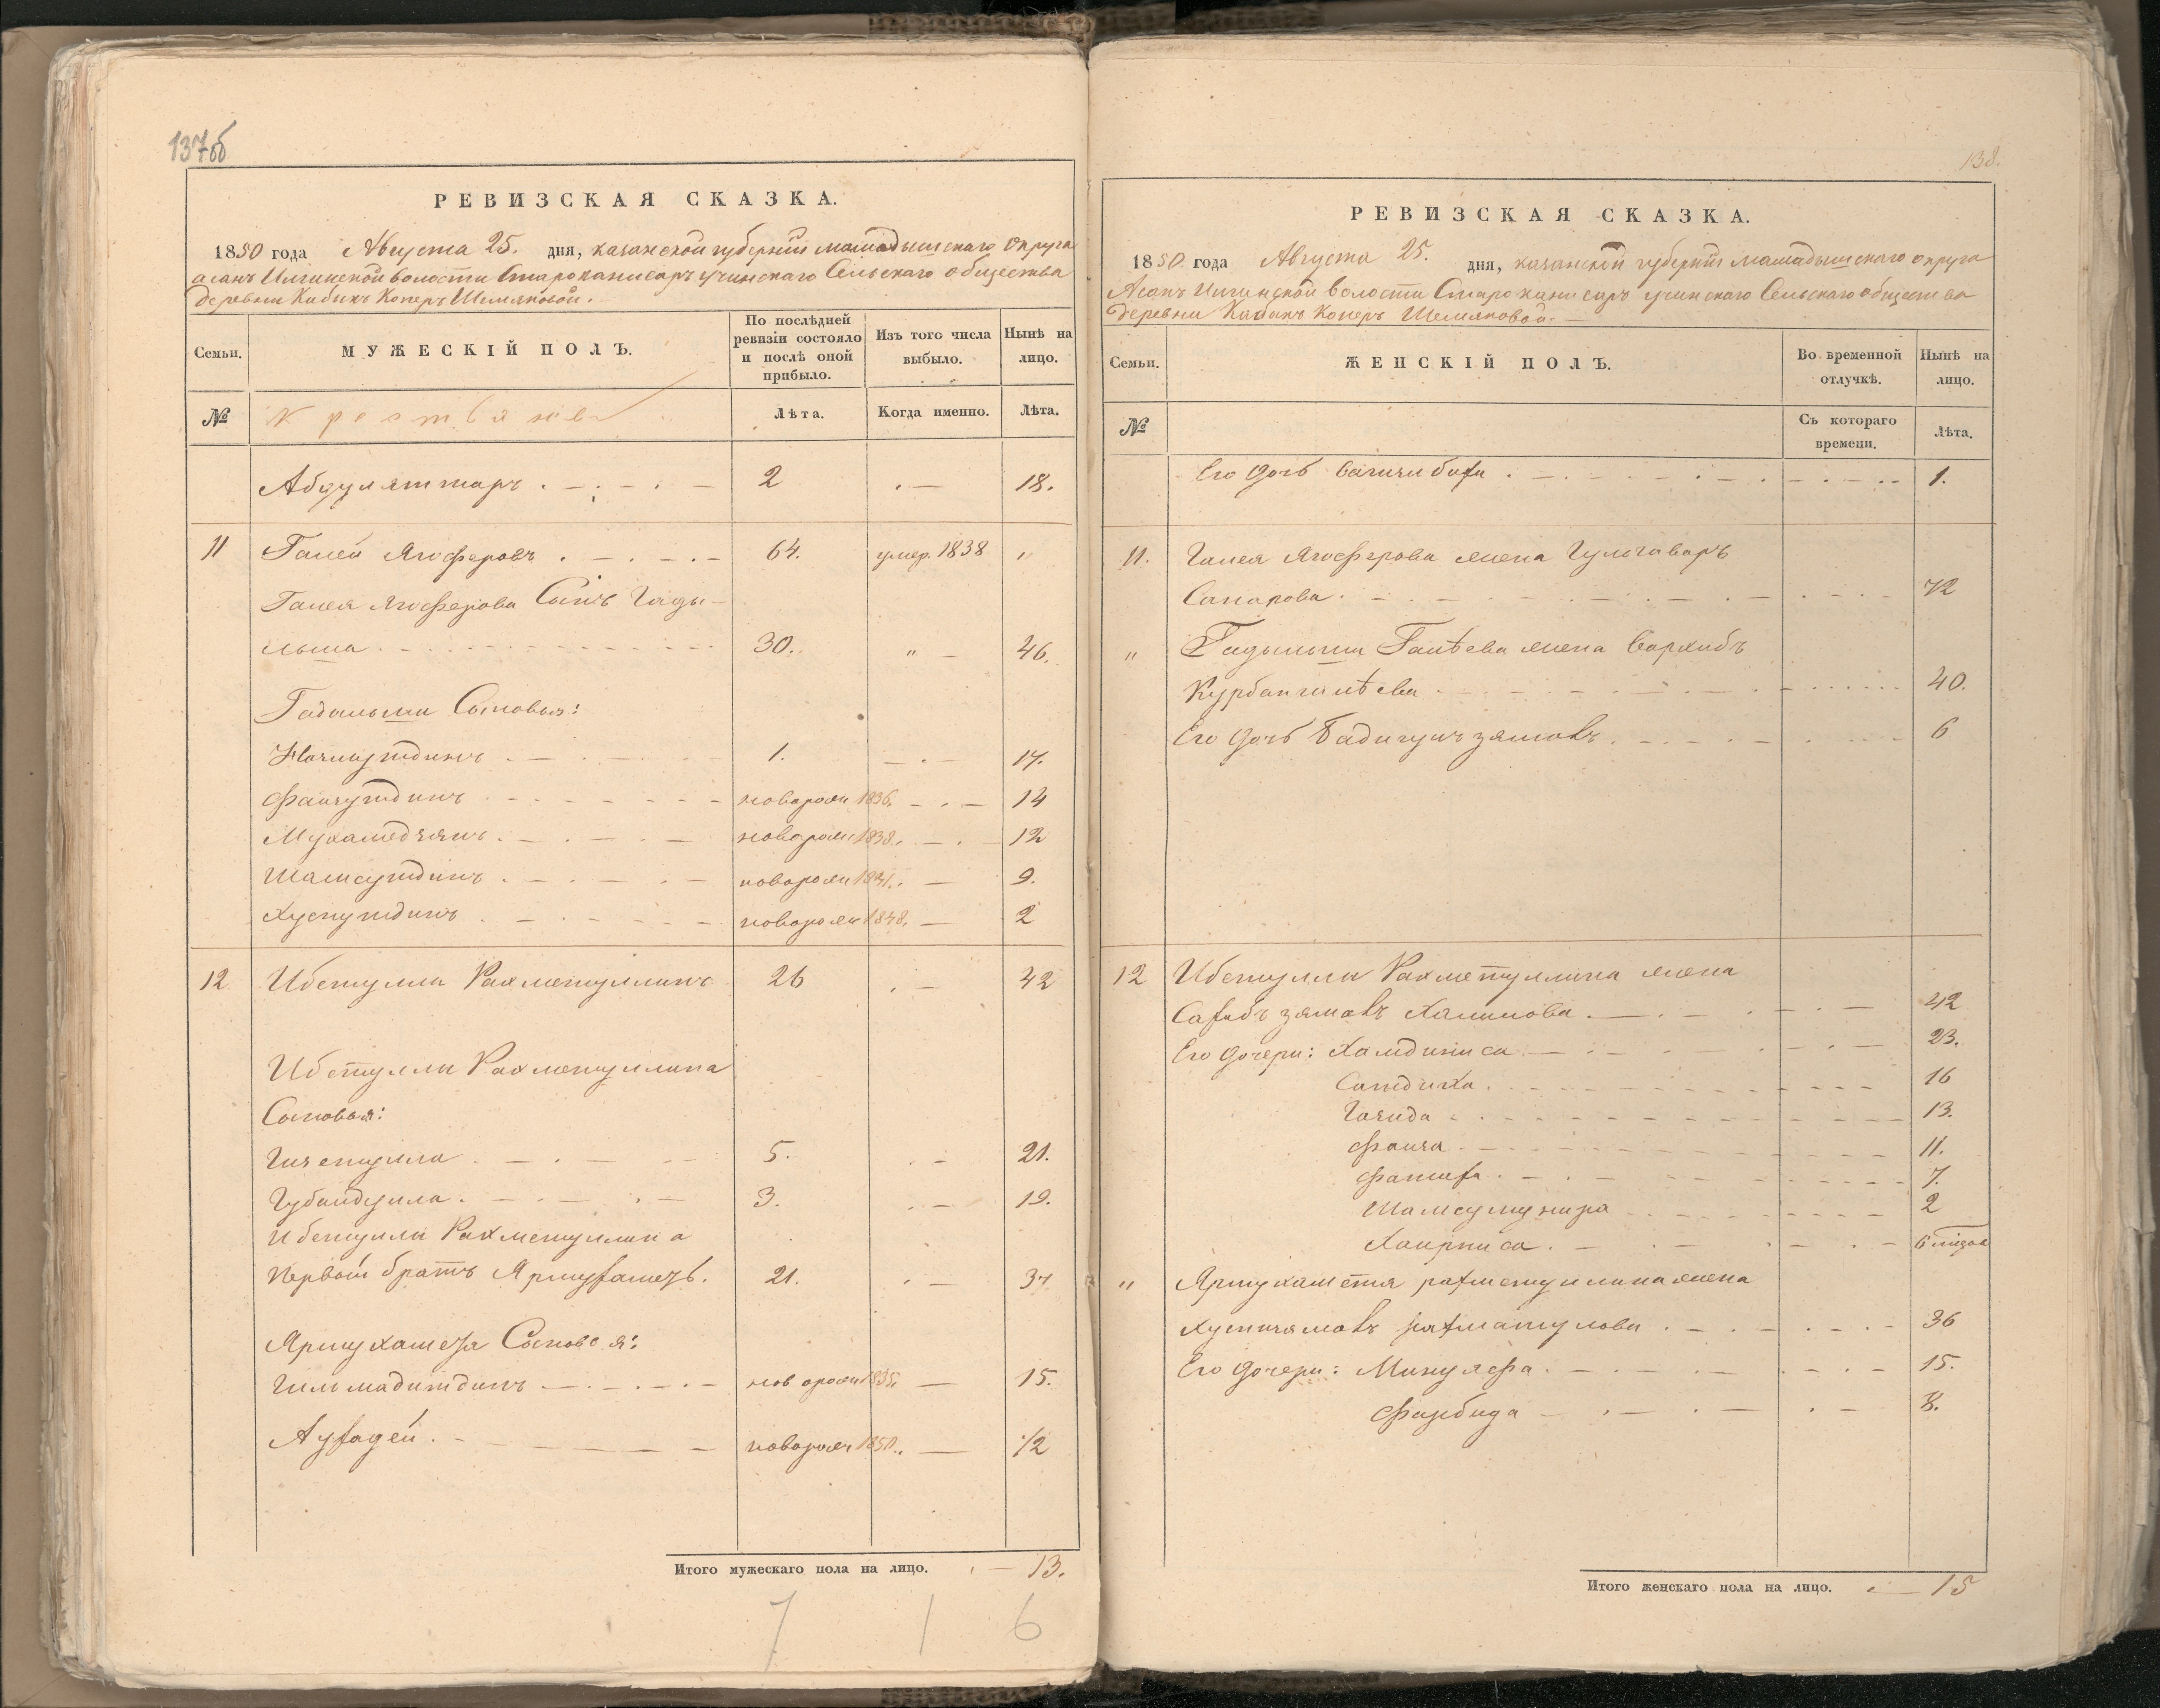 137об
РЕВИЗСКАЯ СКАЗКА.
1850 года Августа 25. дня, казанской губернiи мамадышскаго округа
асанъ Илгинской волости Старокани саръ учинскаго Сельскаго общества
деревни Кабикъ Коперъ Шемяковой.
Семьи. МУЖЕСКIЙ ПОЛЪ. По послѣдней ревизiи состояло и послѣ оной прибыло. Изъ того числа выбыло. Нынѣ на лицо.
№ крестьяне Лѣта. Когда именно. Лѣта.
Абдулятшаръ 2 18.
11 Галей Ягоферовъ 64. умер. 1838 "
Галея Ягоферова Сынъ Гады-
льша 30. " 46.
Гадильши Сыновья:
1. 17.
Фаизутдинъ новорожд 1836. 14
Мухаметзянъ новорожд 1838. 12
Шамсутдинъ новорожд 1841. 9.
Хуснутдинъ новорожд 1848. 2
12 Ибетулла Рахметуллинъ 26 42
Ибетуллы Рахметуллина
Сыновья:
Гизетулла 5. 21.
Губайдулла 3. 19.
Ибетуллы Рахметуллина
первой братъ 21. 37
Сыновья:
Гильмадитдинъ новорожд 1835. 15.
новорожд 1850. 1/2
Итого мужескаго пола на лицо. 13.
7 1 6
138.
РЕВИЗСКАЯ СКАЗКА.
1850 года Августа 25. дня, казанской губернiи мамадышскаго округа
Асанъ Илгинской волости Старокани саръ учинскаго Сельскаго общества
деревни Кабакъ Коперъ Шемяковой.
Семьи. ЖЕНСКIЙ ПОЛЪ. Во временной отлучкѣ. Нынѣ на лицо.
№ Съ котораго времени. Лѣта.
Его дочь 1.
11. Галея Ягоферова жена Гульгаваръ
Сапарова. 72
" Гадыльши Галѣева жена
Курбангалѣева 40.
Его дочь Бадигулъзямалъ. 6
12 Ибетуллы Рахметуллина жена
Халилова. 42
Его дочери: Хамдиниса 23.
Сатдиха. 16
Газида 13.
Фаиза 11.
Фатиха. 7.
Шамсулмунира 2
Хаирниса. 6 мѣся
" Ярмухаметя рахметуллина жена
36
Его дочери: Минулефа. 15.
8.
Итого женскаго пола на лицо. 15